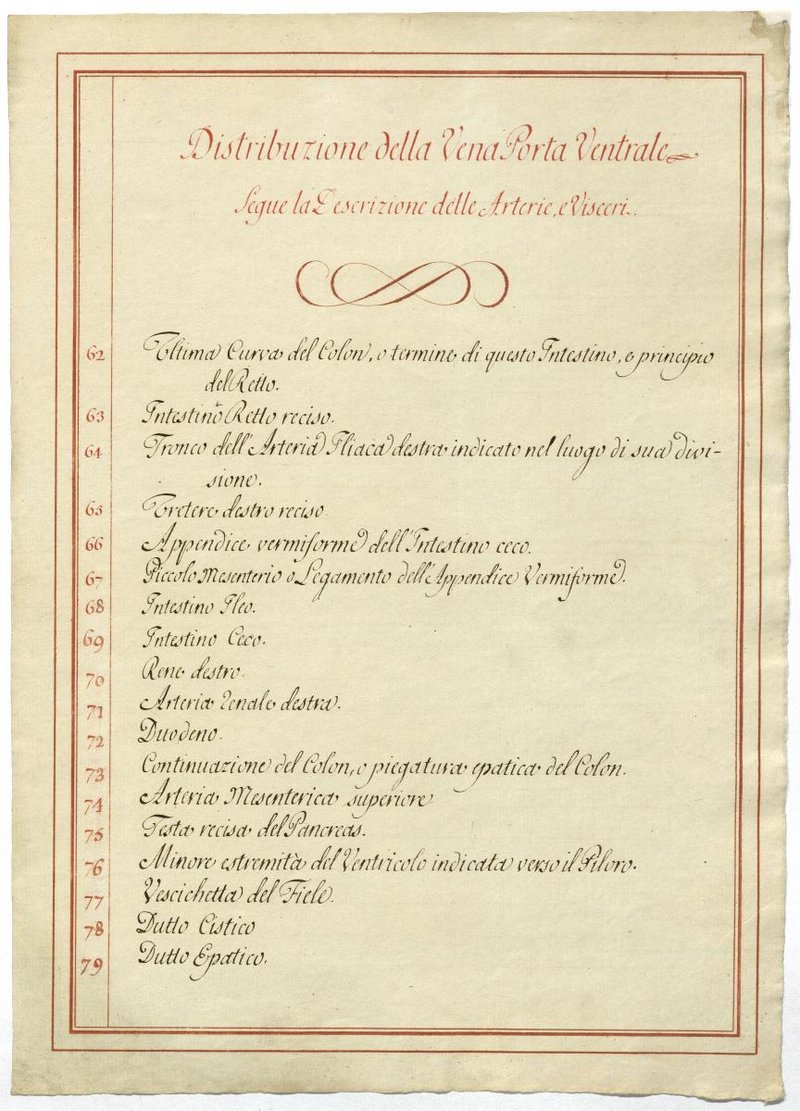 Distribuzione della Vena Porta Ventrale
Segue la Descrizione delle Arterie, e Visceri.
62 Ultima Curva del Colon, o termine di questo Intestino, e principio
del Retto.
63 Intestino Retto reciso.
64 Tronco dell'Arteria Iliaca destra indicato nel luogo di sua divi-
sione.
65 Uretere destro reciso
66 Appendice vermiforme dell'Intestino ceco.
67 Piccolo Mesenterio o Legamento dell'Appendice Vermiforme.
68 Intestino Ileo.
69 Intestino Ceco.
70 Rene destro.
71 Arteria renale destra.
72 Duodeno.
73 Continuazione del Colon, o piegatura epatica del Colon.
74 Arteria Mesenterica superiore
75 Testa recisa del Pancreas.
76 Minore estremità del Ventricolo indicata verso il Piloro.
77 Vescichetta del Fiele.
78 Dutto Cistico
79 Dutto Epatico.